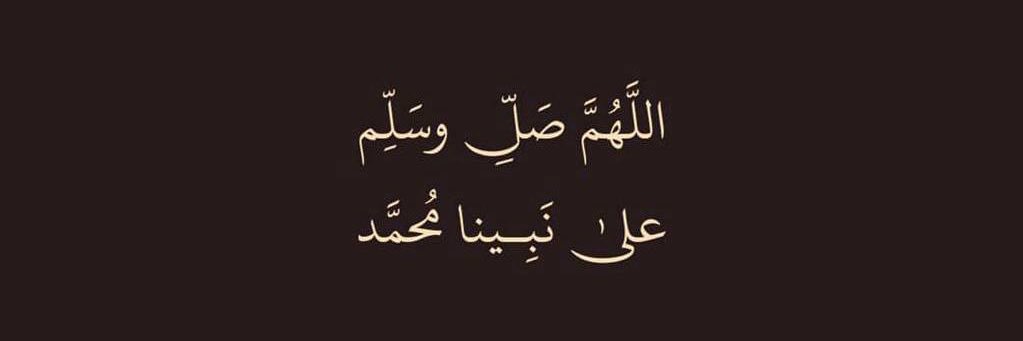 اللَّهُمَّ صَلِّ وسَلِّم
علىٰ نَبِينا مُحمَّد